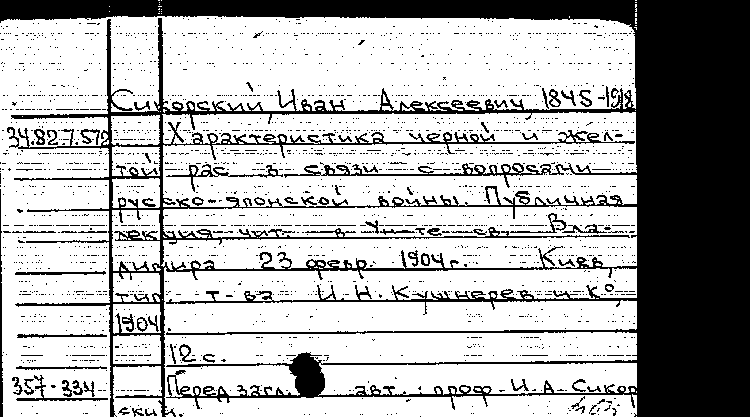 Сикорский, Иван Алексеевич, 1845-1918
34.82.7.572 Характеристика черной и жел-
той рас в связи с вопросами
русско-японской войны. Публичная
лекция, чит. в Ун-те св. Вла-
димира 23 февр. 1904г. Киев,
тип. т-ва И.Н. Кушнерев и К°,
1904.
12 с.
357-334 Перед загл. авт.: проф. И.А. Сикор
ский.